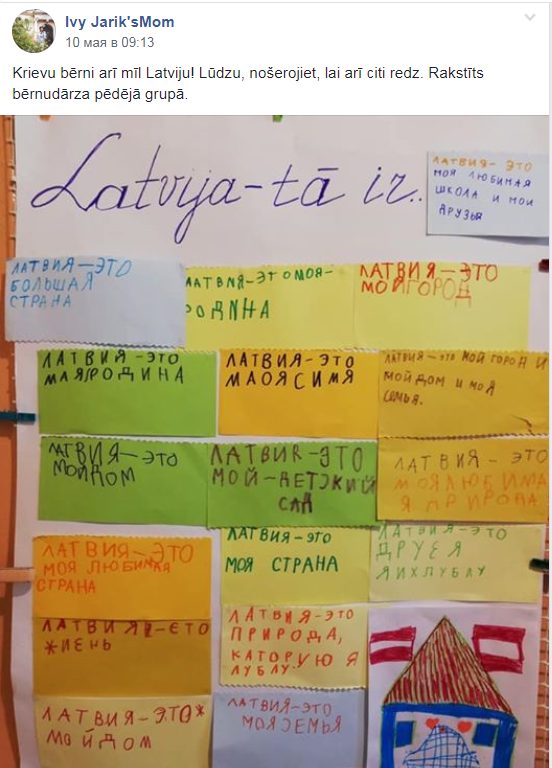 Ivy Jarik'sMom
10 мая в 09:13
Krievu bērni arī mīl Latviju! Lūdzu, nošerojiet, lai arī citi redz. Rakstīts
bērnudārza pēdējā grupā.
Latvija-tā ir..
ЛАТВИЯ- ЭТО
МОЯ ЛЮБИМАЯ
ШКОЛА И МОИ
ДРУЗЬЯ
ЛАТВИЯ-ЭТО
БОЛЬШАЯ
СТРАНА
ЛАТВИЯ-ЭТО МОЯ-
РОДИНА
ЛАТВИЯ-ЭТО
МОЙ ГОРОД
ЛАТВИЯ-ЭТО
МАЯ РОДИНА
ЛАТВИЯ-ЭТО
МАОЯ СИМЯ
ЛАТВИЯ-ЭТО МОЙ ГОРОД И
МОЙ ДОМ И МОЯ
СЕМЬЯ.
ЛАТВИЯ-ЭТО
МОЙ ДОМ
ЛАТВИЯ-ЭТО
МОЙ-ДЕТСКИЙ
САД
ЛАТВИЯ-ЭТО
МОЯ ЛЮБИМА
Я ПРИРОДА
ЛАТВИЯ-ЭТО
МОЯ ЛЮБИМАЯ
СТРАНА
ЛАТВИЯ-ЭТО
МОЯ СТРАНА
ЛАТВИЯ-ЭТО
ДРУЗЯ
Я ИХ ЛУБЛУ
ЛАТВИЯ-ЄТО
ЖИЕНЬ
ЛАТВИЯ-ЭТО
ПРИРОДА,
КАТОРУЮ Я
ЛУБЛУ
ЛАТВИЯ-ЭТО*
МОЙ ДОМ
ЛАТВИЯ-ЭТО
МОЯ СЕМЬЯ